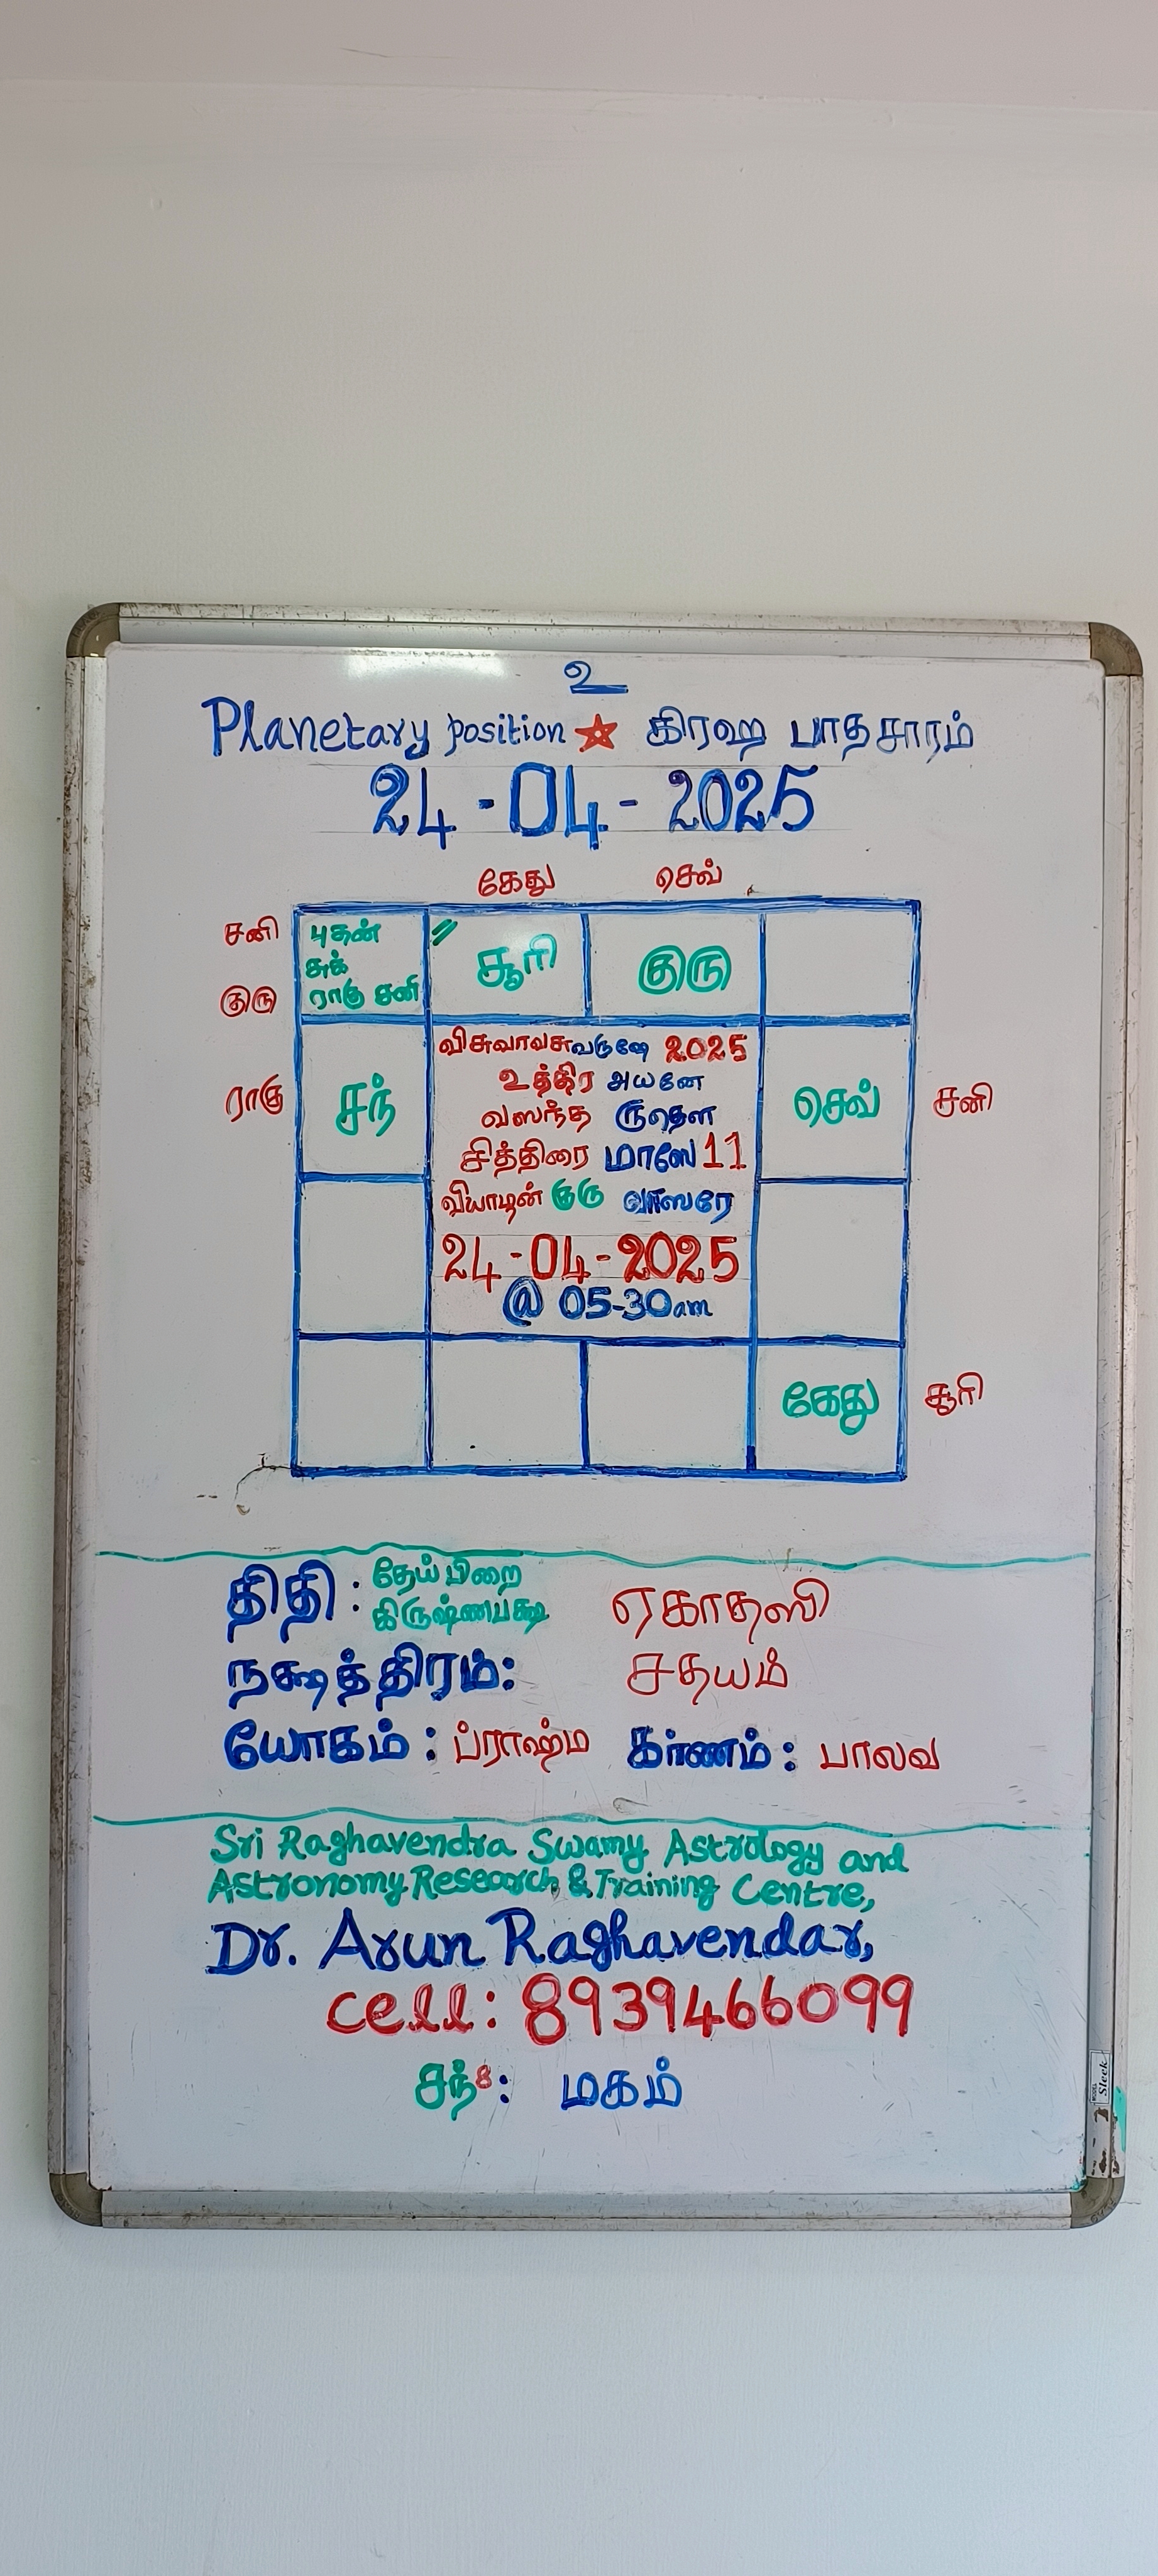 உ
Planetary position கிரஹ பாதசாரம்
24-04-2025
கேது செவ்
சனி புதன் // சூரி குரு
சுக்
குரு ராகு சனி
விசுவாவசுவருஷே 2025
உத்திர அயனே
ராகு சந் வஸந்த ருதௌ செவ் சனி
சித்திரை மாஸே 11
வியாழன் குரு வாஸரே
24-04-2025
@ 05-30am
கேது சூரி
திதி : தேய்பிறை ஏகாதஸி
கிருஷ்ணபக்ஷ
நக்ஷத்திரம்: சதயம்
யோகம் : ப்ராஹ்ம கர்ணம் : பாலவ
Sri Raghavendra Swamy Astrology and
Astronomy Research & Training Centre,
Dr. Arun Raghavendar,
cell: 8939466099
சந்8: மகம்
Sleek